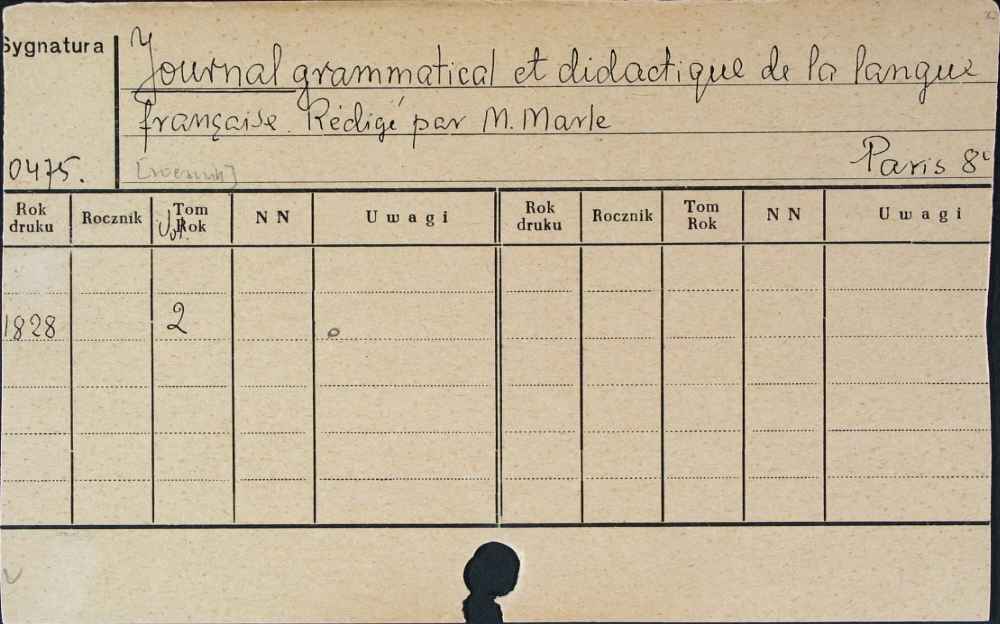 Sygnatura
Journal grammatical et didactique de la langue
française. Rédigé par M. Marle
0475.
Paris 8°
Rok druku Rocznik Tom Rok NN Uwagi Rok druku Rocznik Tom Rok NN Uwagi
Vol.
1828 2